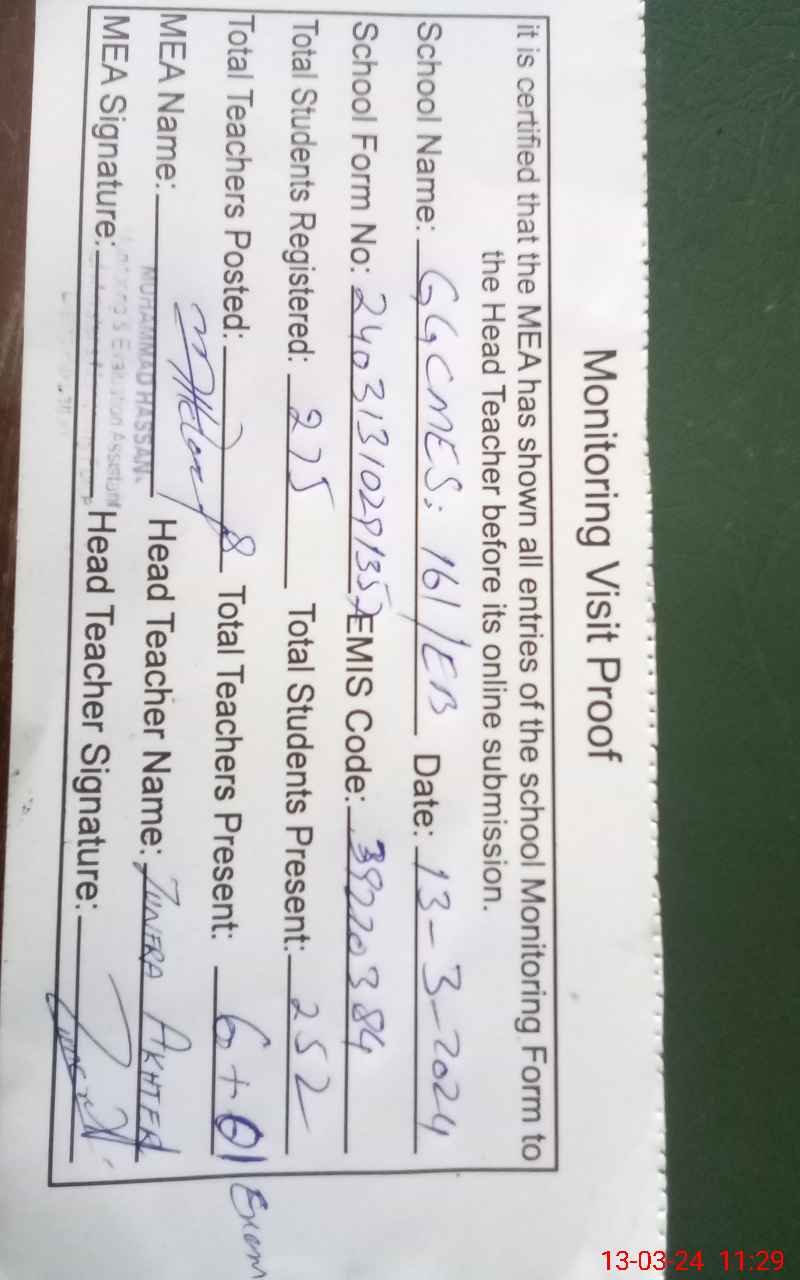 Monitoring Visit Proof
it is certified that the MEA has shown all entries of the school Monitoring Form to
the Head Teacher before its online submission.
School Name: GGCMES: 161/EB Date: 13-3-2024
School Form No: EMIS Code: 39220384
Total Students Registered: 275 Total Students Present: 252
Total Teachers Posted: 8 Total Teachers Present: 6+01 Exam
MEA Name: Head Teacher Name: AKHTER
MUHAMMAD HASSAN
MEA Signature: Head Teacher Signature:
Evaluation Assistant
13-03-24 11:29